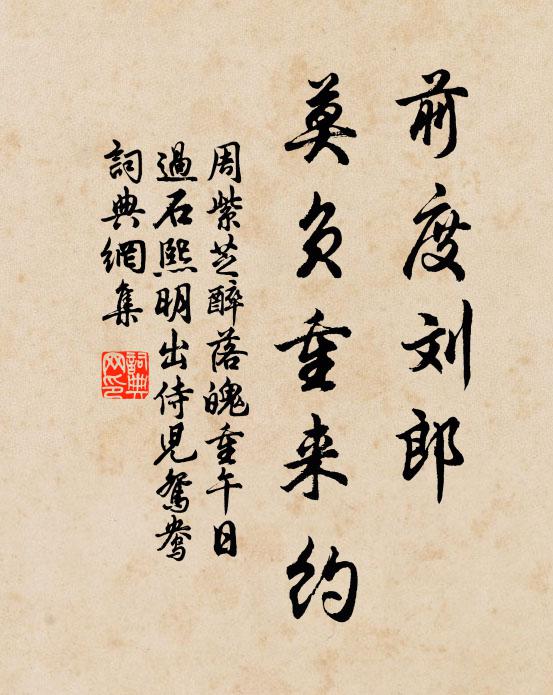 前度刘郎
莫负重来约
周紫芝醉落魄重午日
過石熙明出侍児鴛鴦
詞典網集
詞典网印